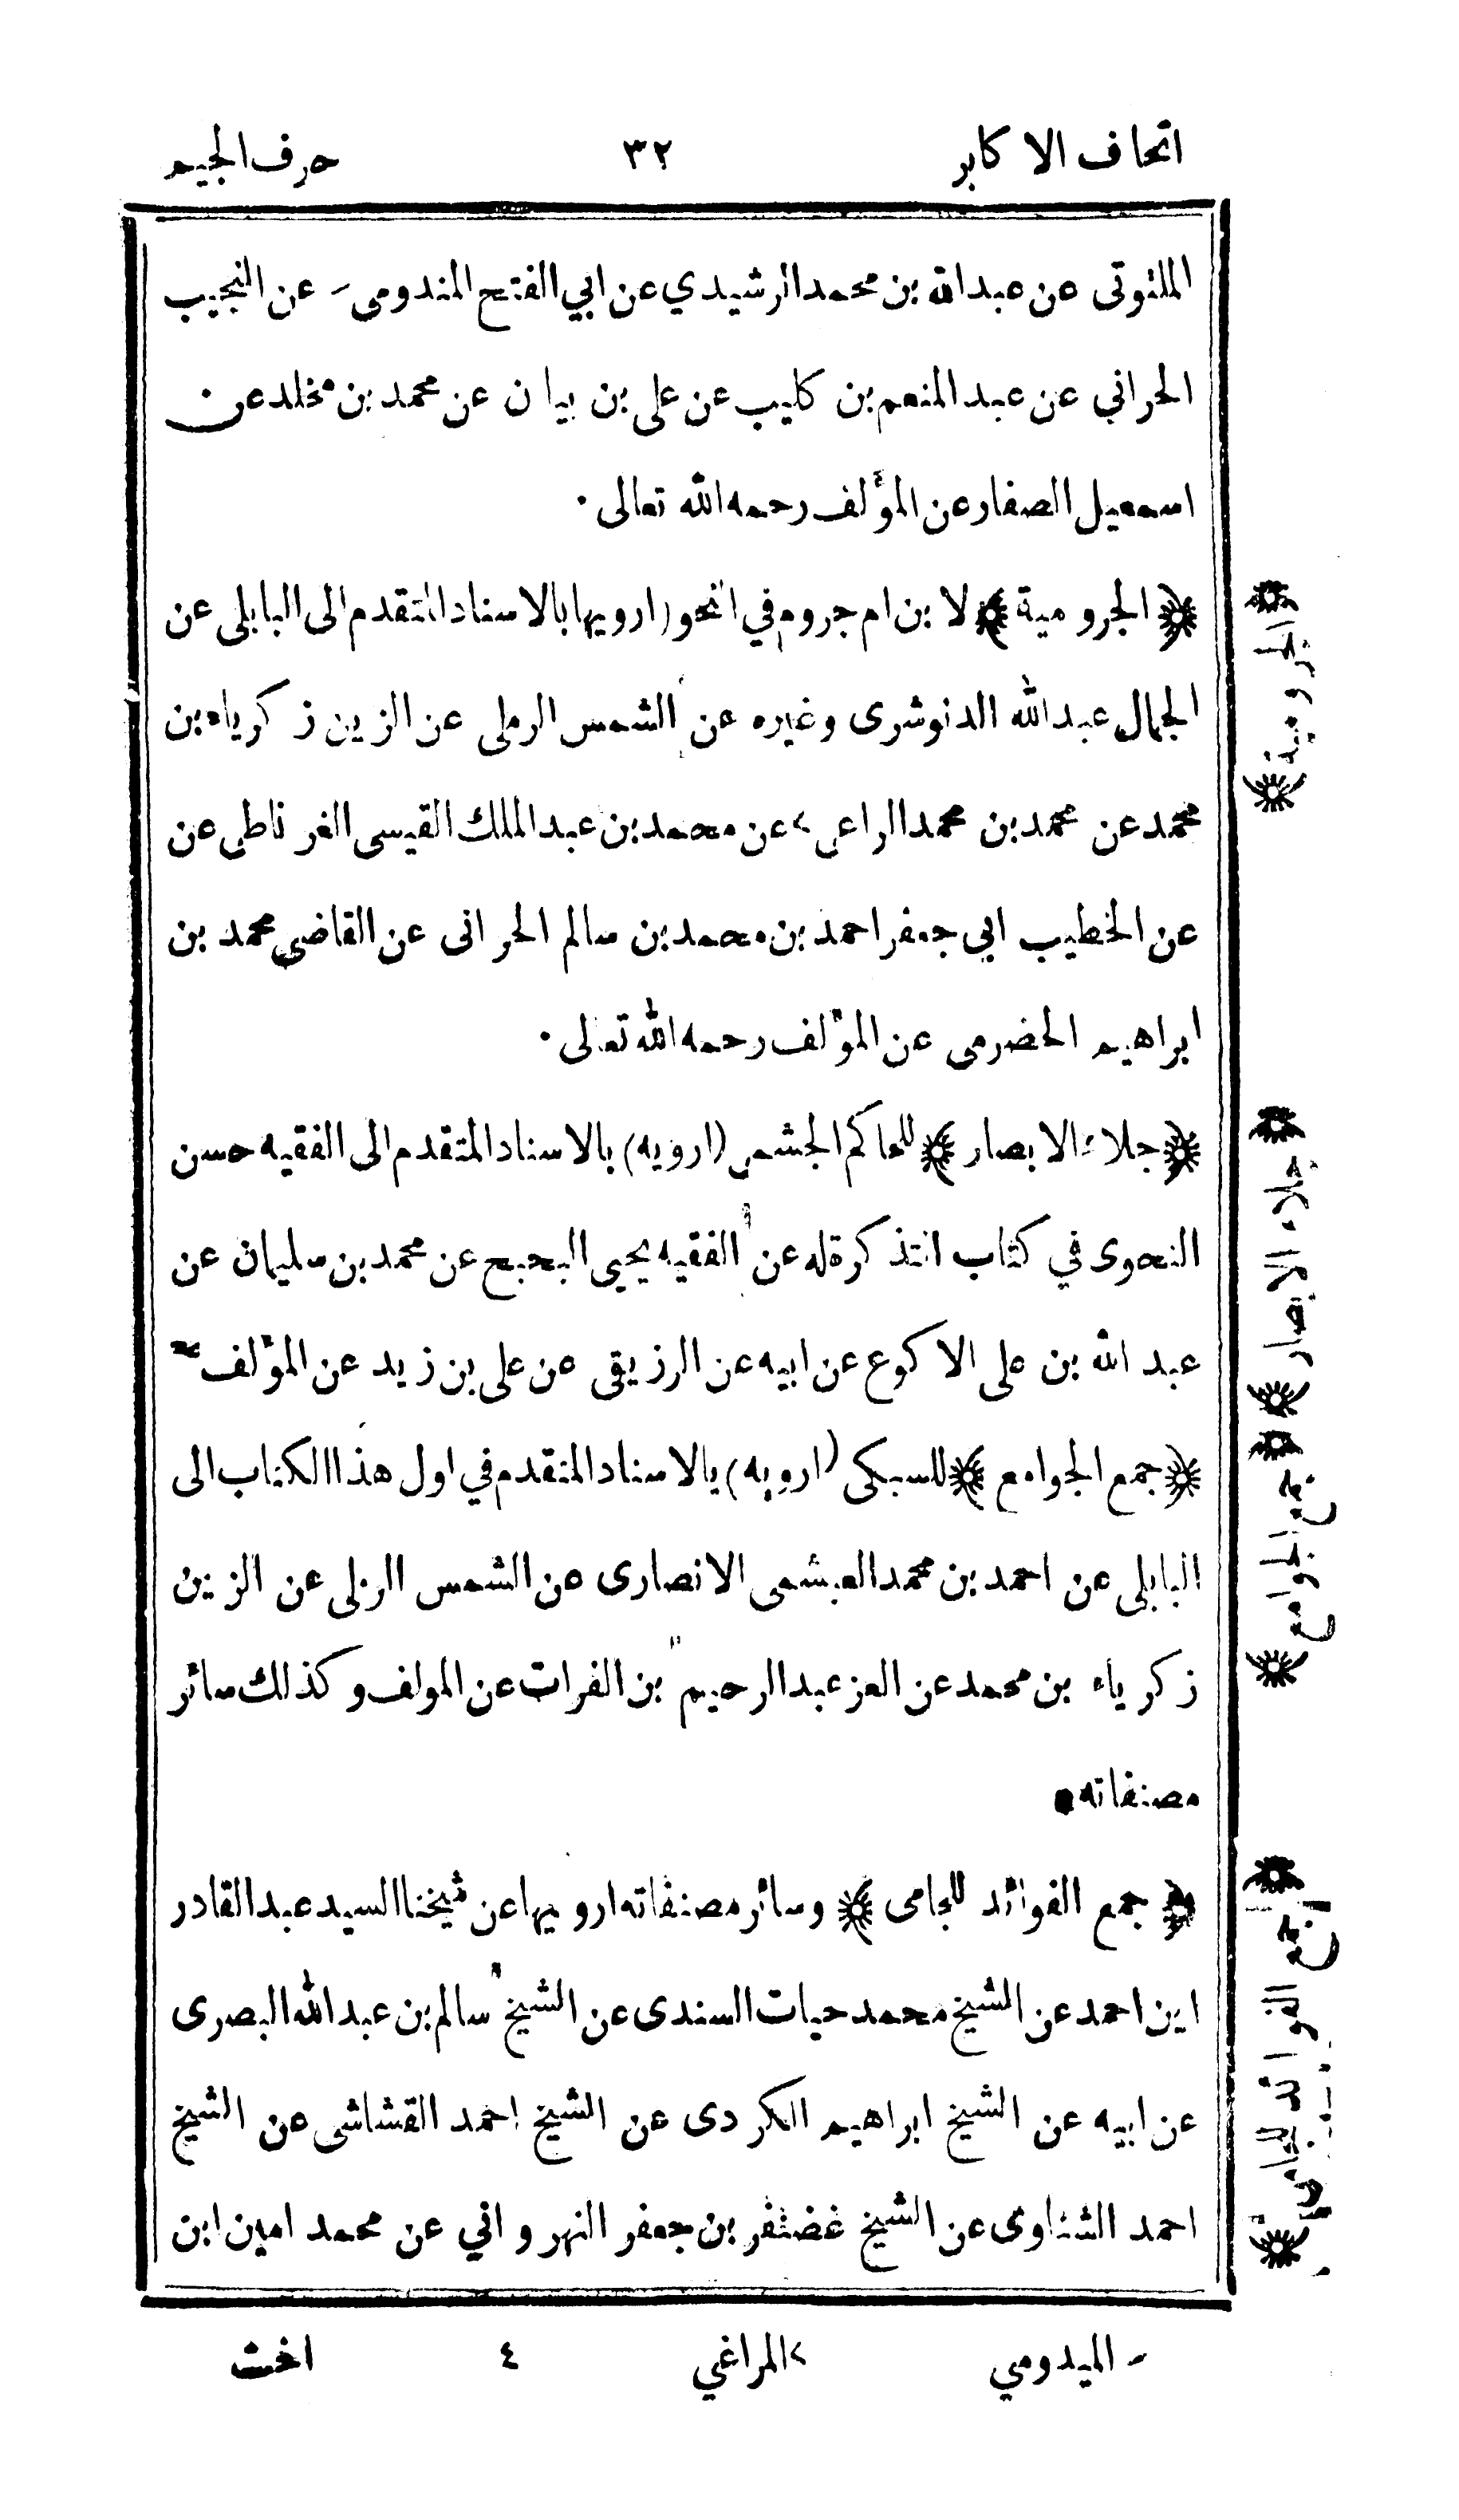 اتحاف الاكابر
٣٢
حرف الجيم
الملثوتى عن عبدالله بن محمد الرشيدي عن ابي الفتح المندومى َ عن النجيب
الحراني عن عبد المنعم بن كليب عن على بن بيان عن محمد بن مخلد عن
اسمعيل الصفار عن المؤلف رحمه الله تعالى ·
﴿ الجرومية ﴾ لابن ام جروم في النحو (ارويها بالاسناد المتقدم الى البابلى عن
الجمال عبدالله الدنوشرى وغيره عن الشمس الرملى عن الزين زكرياء بن
محمد عن محمد بن محمد الراعى > عن محمد بن عبد الملك القيسى الغرناطى عن
عن الخطيب ابى جعفر احمد بن محمد بن سالم الحرانى عن القاضى محمد بن
ابراهيم الحضرمى عن المؤلف رحمه الله تعالى ·
﴿ جلاء الابصار ﴾ للحاكم الجشمى (ارويه) بالاسناد المتقدم الى الفقيه حسن
النحوى في كتاب التذكرة له عن الفقيه يحيى البحيح عن محمد بن سليمان عن
عبد الله بن على الاكوع عن ابيه عن الرزيقى عن على بن زيد عن المؤلف
﴿ جمع الجوامع ﴾ للسبكى (ارويه) بالاسناد المتقدم في اول هذا الكتاب الى
البابلى عن احمد بن محمد العبشمى الانصارى عن الشمس الرملى عن الزين
زكرياء بن محمد عن العز عبد الرحيم بن الفرات عن المولف وكذلك سائر
مصنفاته
﴿ جمع الفوائد للجامى ﴾ وسائر مصنفاته ارويها عن شيخنا السيد عبد القادر
ابن احمد عن الشيخ محمد حيات السندى عن الشيخ سالم بن عبدالله البصرى
عن ابيه عن الشيخ ابراهيم الكردى عن الشيخ احمد القشاشى عن الشيخ
احمد الشناوى عن الشيخ غضنفر بن جعفر النهرواني عن محمد امين ابن
﴿ الجرومية ﴾
﴿ جلاء الابصار ﴾
﴿ جمع الجوامع ﴾
﴿ جمع الفوائد للجامى ﴾
َ الميدومي
> المراغي
٤
اخت